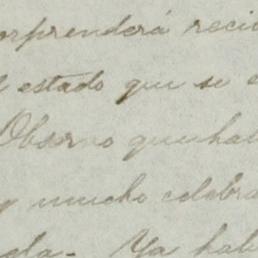 sorprenderá reci
l estado que se e
Observo que hab
y mucho celebra
da. Ya hab